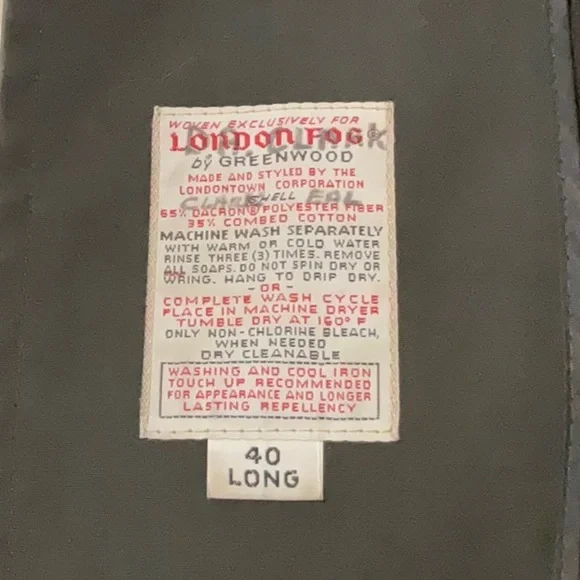 WOVEN EXCLUSIVELY FOR
LONDON FOG®
by GREENWOOD
MADE AND STYLED BY THE
LONDONTOWN CORPORATION
SHELL
65% DACRON® POLYESTER FIBER
35% COMBED COTTON
MACHINE WASH SEPARATELY
WITH WARM OR COLD WATER
RINSE THREE (3) TIMES. REMOVE
ALL SOAPS. DO NOT SPIN DRY OR
WRING. HANG TO DRIP DRY.
- OR -
COMPLETE WASH CYCLE
PLACE IN MACHINE DRYER
TUMBLE DRY AT 160° F
ONLY NON-CHLORINE BLEACH,
WHEN NEEDED
DRY CLEANABLE
WASHING AND COOL IRON
TOUCH UP RECOMMENDED
FOR APPEARANCE AND LONGER
LASTING REPELLENCY
40
LONG